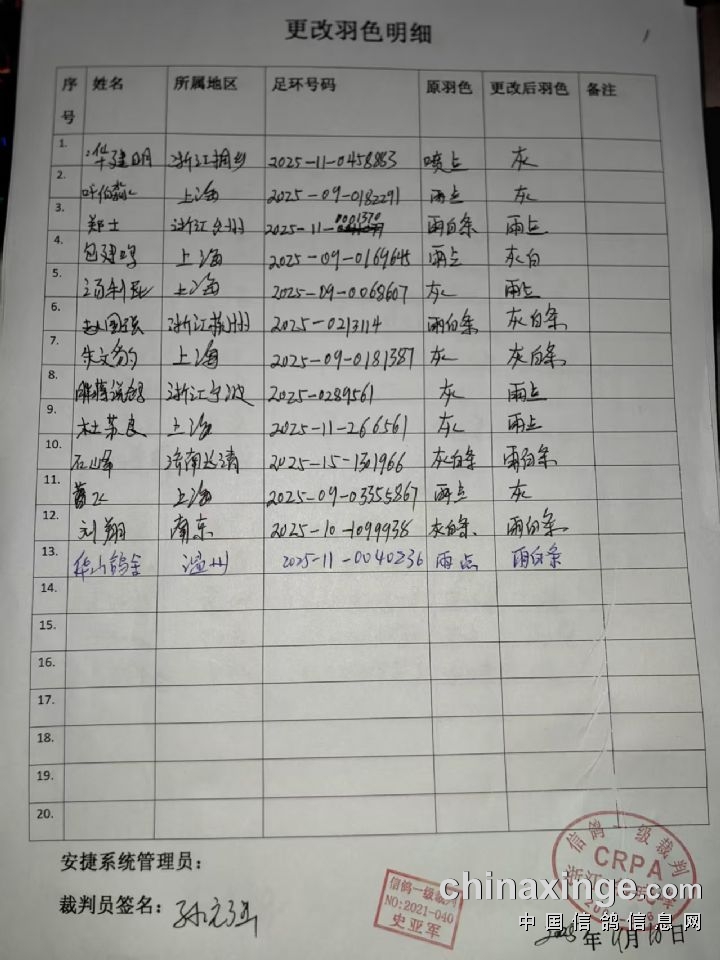 更改羽色明细
1
序号 姓名 所属地区 足环号码 原羽色 更改后羽色 备注
1. 华建明 浙江桐乡 2025-11-0458883 喷点 灰
2. 上海 2025-09-0182291 雨点 灰
3. 郑士 浙江 州 2025-11-0001370 雨白条 雨点
4. 包建鸣 上海 2025-09-0169645 雨点 灰白
5. 汤利 上海 2025-09-0068607 灰 雨点
6. 赵国强 浙江 州 2025-0213114 雨白条 灰白条
7. 朱文 上海 2025-09-0181387 灰 灰白条
8. 浙江宁波 2025-0289561 灰 雨点
9. 杜苏良 上海 2025-11-266561 灰 雨点
10. 石峰 济南长清 2025-15-1301966 灰白条 雨白条
11. 上海 2025-09-03355867 雨点 灰
12. 刘翔 南京 2025-10-1099938 灰白条 雨白条
13. 华山鸽舍 温州 2025-11-0040236 雨点 雨白条
14.
15.
16.
17.
18.
19.
20.
安捷系统管理员：
裁判员签名：
信鸽一级裁判
NO:2021-040
史亚军
信鸽一级裁判
CRPA
浙江
chinaxinge.com
中国信鸽信息网
2025年9月10日